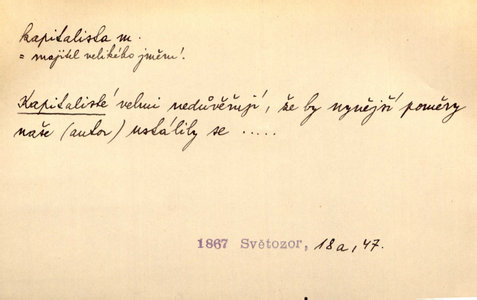 kapitalista m.
= majitel velikého jmění.
Kapitalisté velmi nedůvěřují, že by nynější poměry
naše (autor) ustálily se .....
1867 Světozor, 18a, 47.